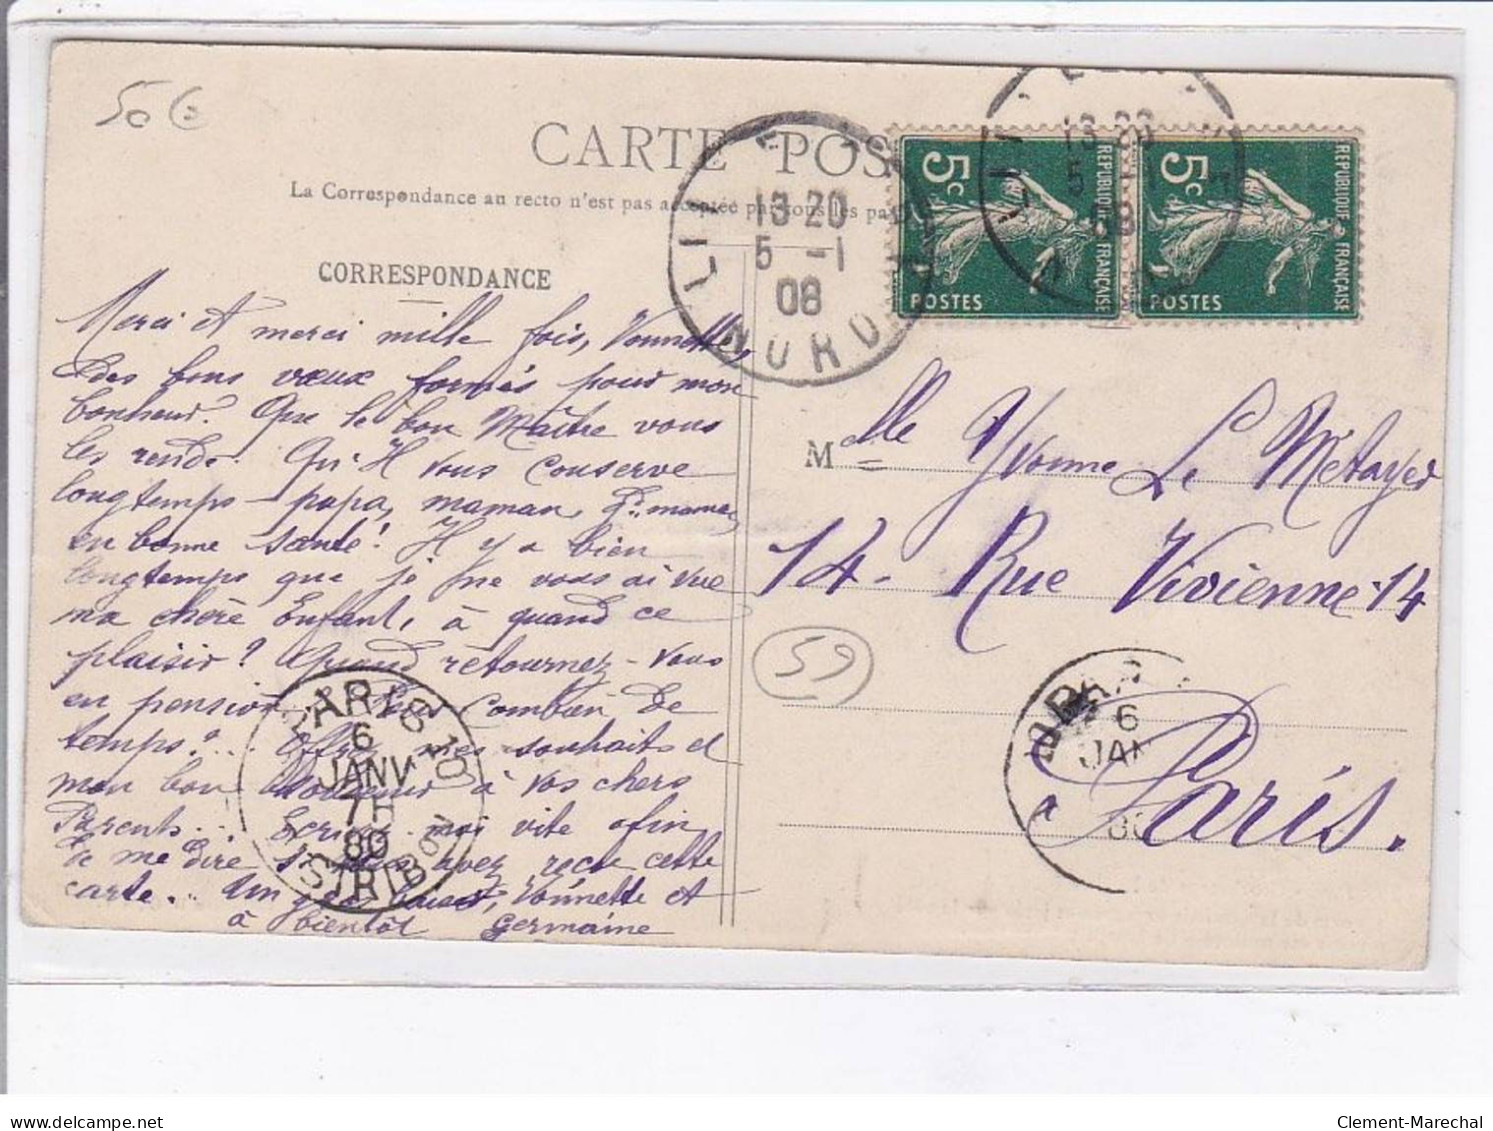 50 €
CARTE POS
La Correspondance au recto n'est pas acceptée par tous les pa
CORRESPONDANCE
13 20
5 -1
08
NORD
13 20
5
08
5c
REPUBLIQUE FRANÇAISE
POSTES
5c
REPUBLIQUE FRANÇAISE
POSTES
Merci et merci mille fois, Vonnette,
des bons vœux formés pour mon
bonheur. Que le bon Maître vous
les rende. Qu'Il vous conserve
longtemps papa, maman, Gd. maman
en bonne santé! Il y a bien
longtemps que je ne vous ai vue
ma chère Enfant, à quand ce
plaisir? Quand retournez-vous
en pension? Pour combien de
temps?.. Offrez mes souhaits et
mon bon souvenir à vos chers
Parents... Ecrivez-moi vite afin
de me dire si vous avez reçu cette
carte. Un gros baiser, Vonnette et
à bientôt Germaine
Melle Yvonne Le Métayer
14 - Rue Vivienne - 14
59
à Paris.
PARIS 10
6
JANV
7H
80
DISTRIBON
PARIS
6
JAN
80
delcampe.net
Clement-Marechal